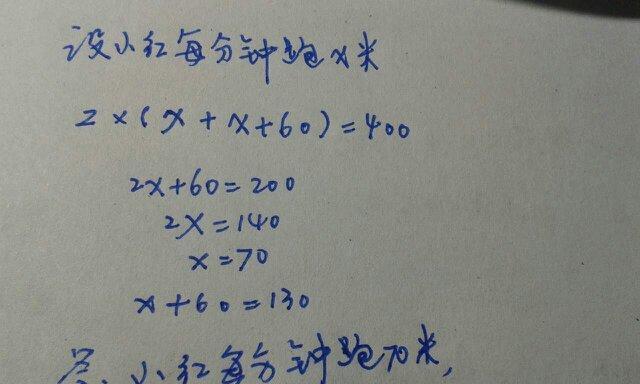 设小红每分钟跑x米
2×(x+x+60)=400
2x+60=200
2x=140
x=70
x+60=130
答、小红每分钟跑70米,